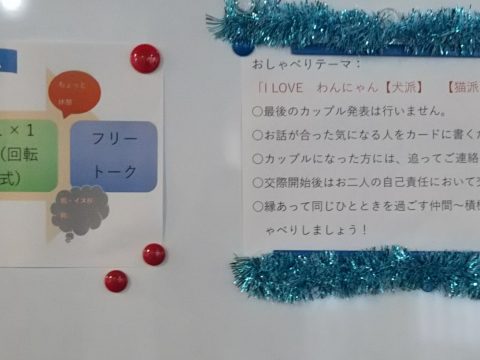 ちょっと
休憩
1×1
(回転
式)
フリー
トーク
おしゃべりテーマ：
「I LOVE　わんにゃん【犬派】　【猫派
○最後のカップル発表は行いません。
○お話が合った気になる人をカードに書くだ
○カップルになった方には、追ってご連絡
○交際開始後はお二人の自己責任において交
○縁あって同じひとときを過ごす仲間～積極
ゃべりしましょう！